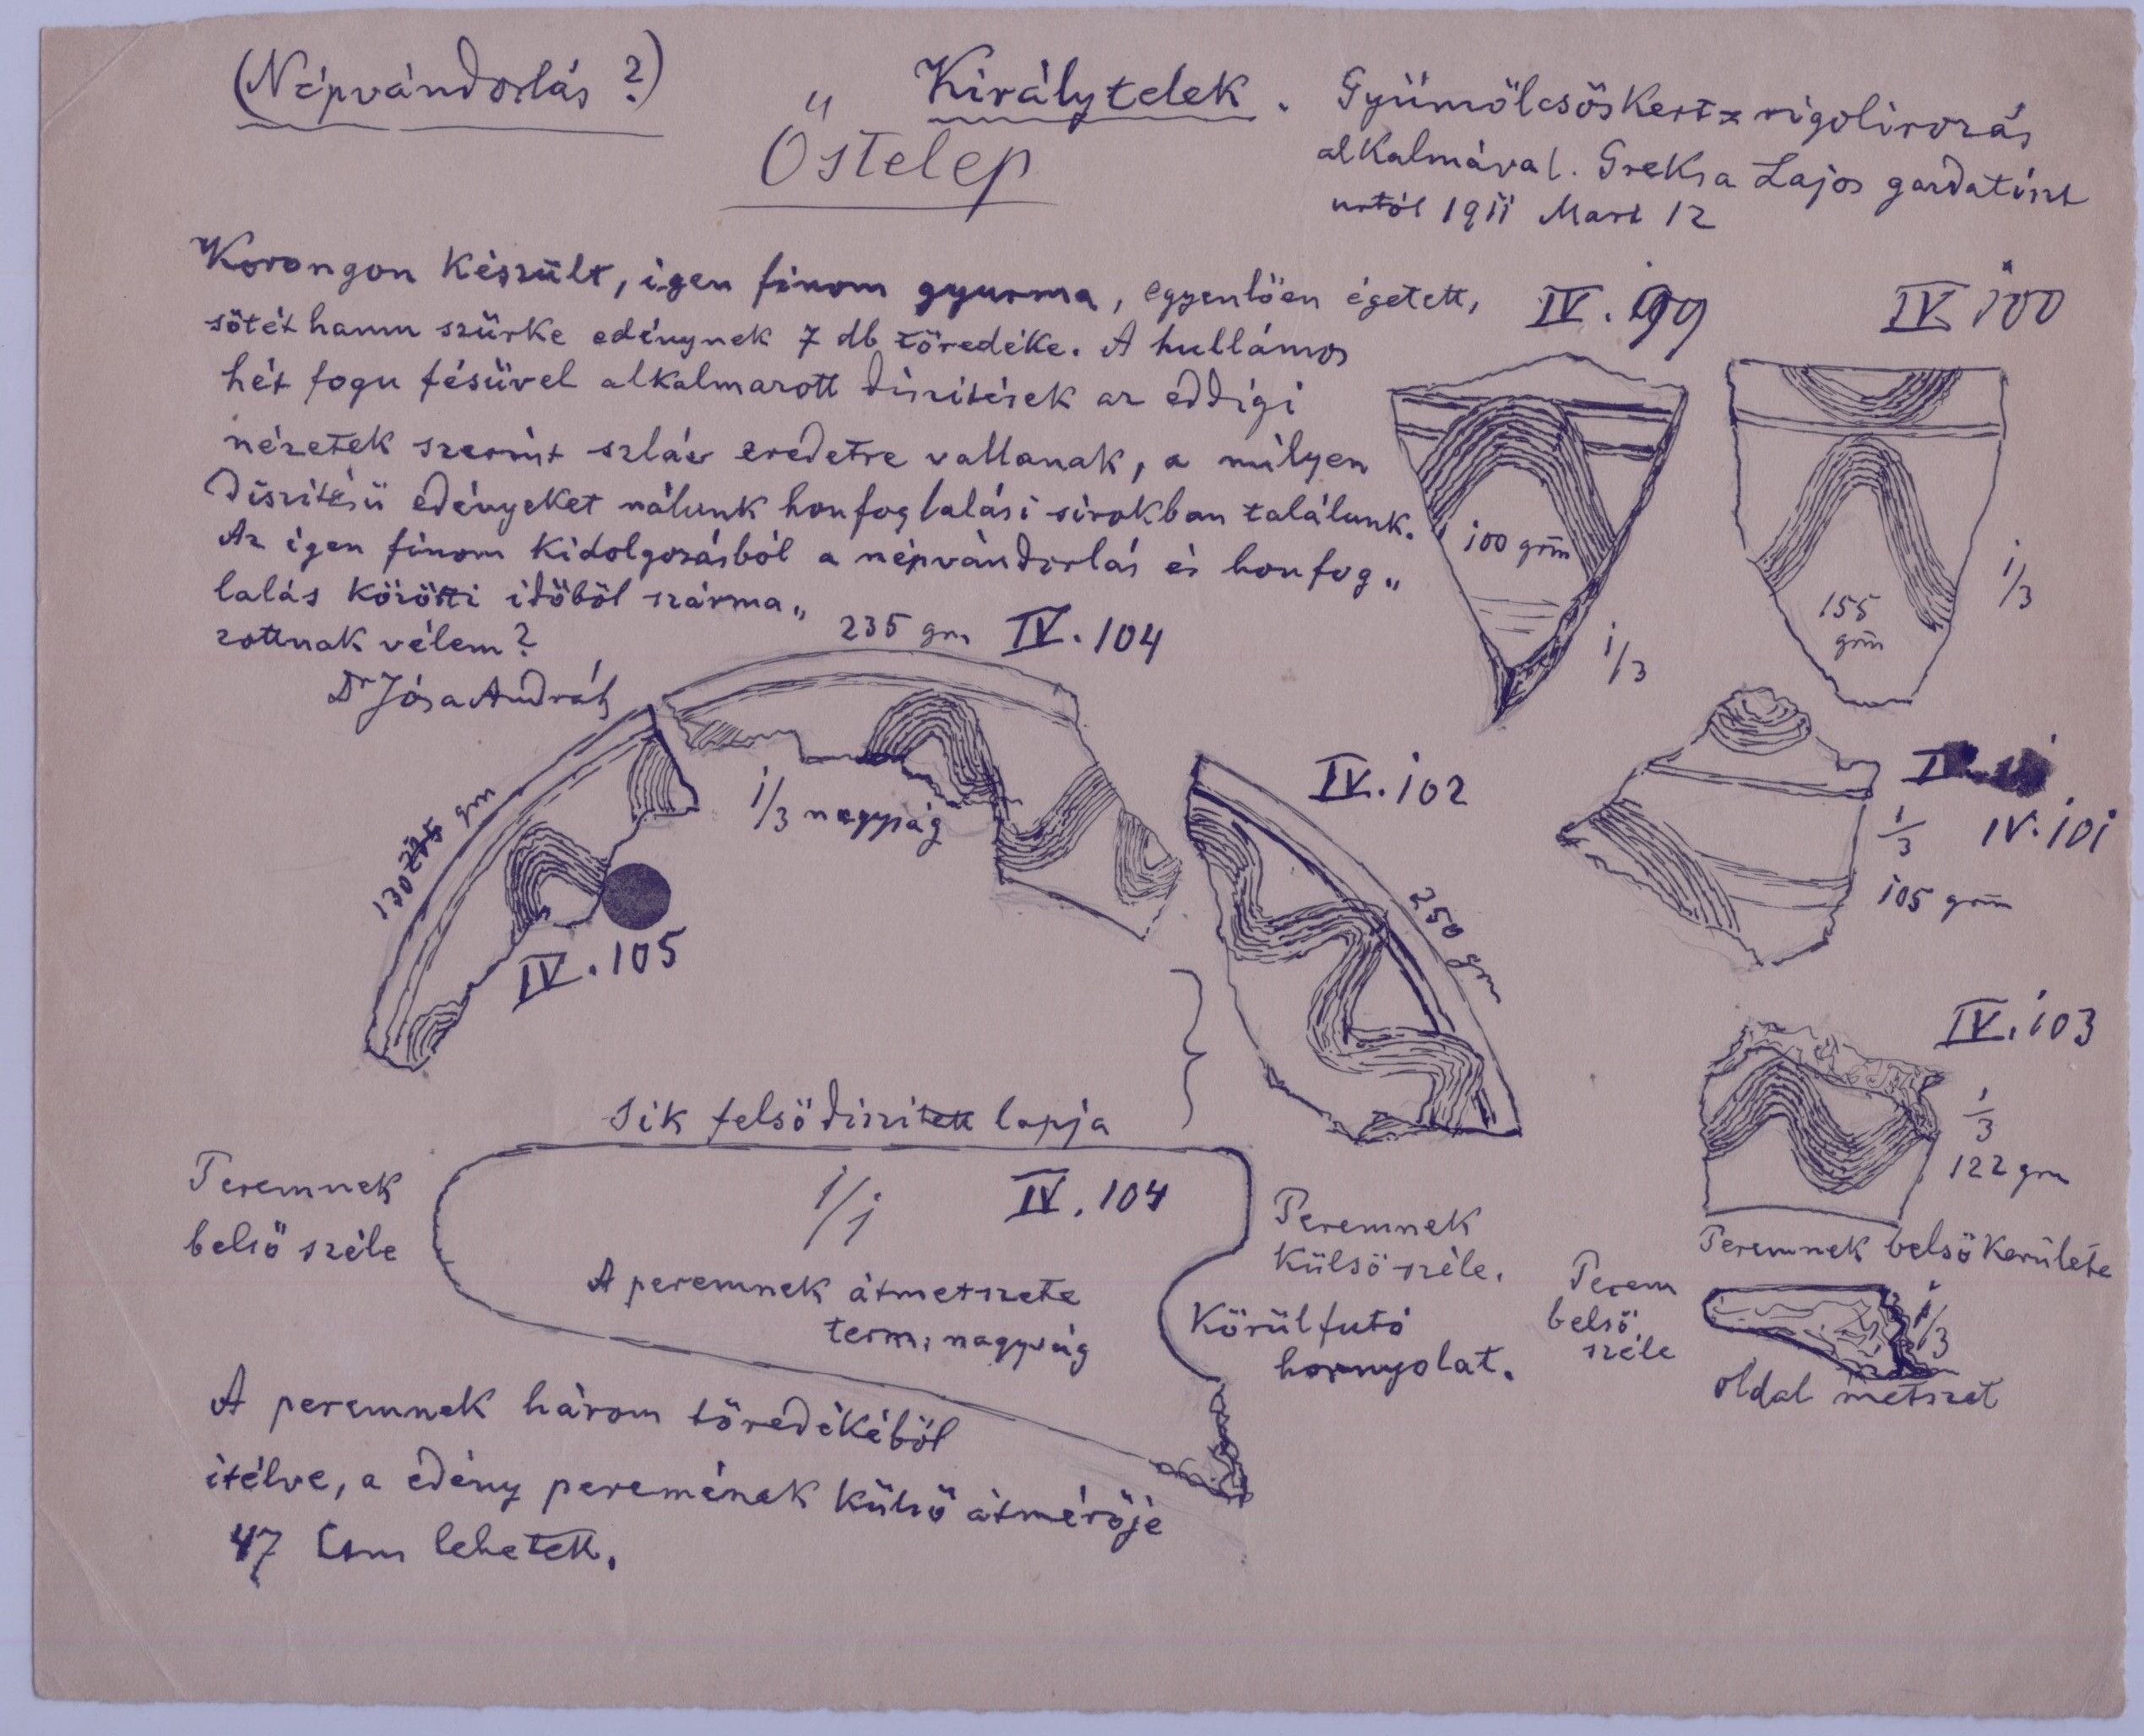 (Népvándorlás ?)
Őstelep
Királytelek. Gyümölcsöskert rigolirozás
alkalmával. Greksa Lajos gazdatiszt
urtól 1911 Mart 12
Korongon készült, igen finom gyurma, egyenlöen égetett,
sötét hamu szürke edénynek 7 db töredéke. A hullámos
hét fogu fésüvel alkalmazott diszitések az eddigi
nézetek szerint szláv eredetre vallanak, a milyen
diszitésü edényeket nálunk honfoglalási sirokban találunk.
Az igen finom kidolgozásból a népvándorlás és honfog„
lalás közötti idöböl szárma„
zottnak vélem?
Dr Jósa András
IV. 199
100 grm
1/3
IV 100
155
grm
1/3
235 gm IV. 104
1/3 nagyság
130 gm
IV. 105
IV. 102
250 gm
1/3 IV. 101
105 grm
IV. 103
1/3
122 gm
Peremnek belsö kerülete
Perem
belsö
széle
1/3
oldal metszet
Sik felsö diszitett lapja
Peremnek
belsö széle
1/1 IV. 104
A peremnek átmetszete
term. nagyság
Peremnek
külsö széle.
Körülfutó
hornyolat.
A peremnek három töredékéböl
itélve, a edény peremének külsö átméröje
47 Ctm lehetett.